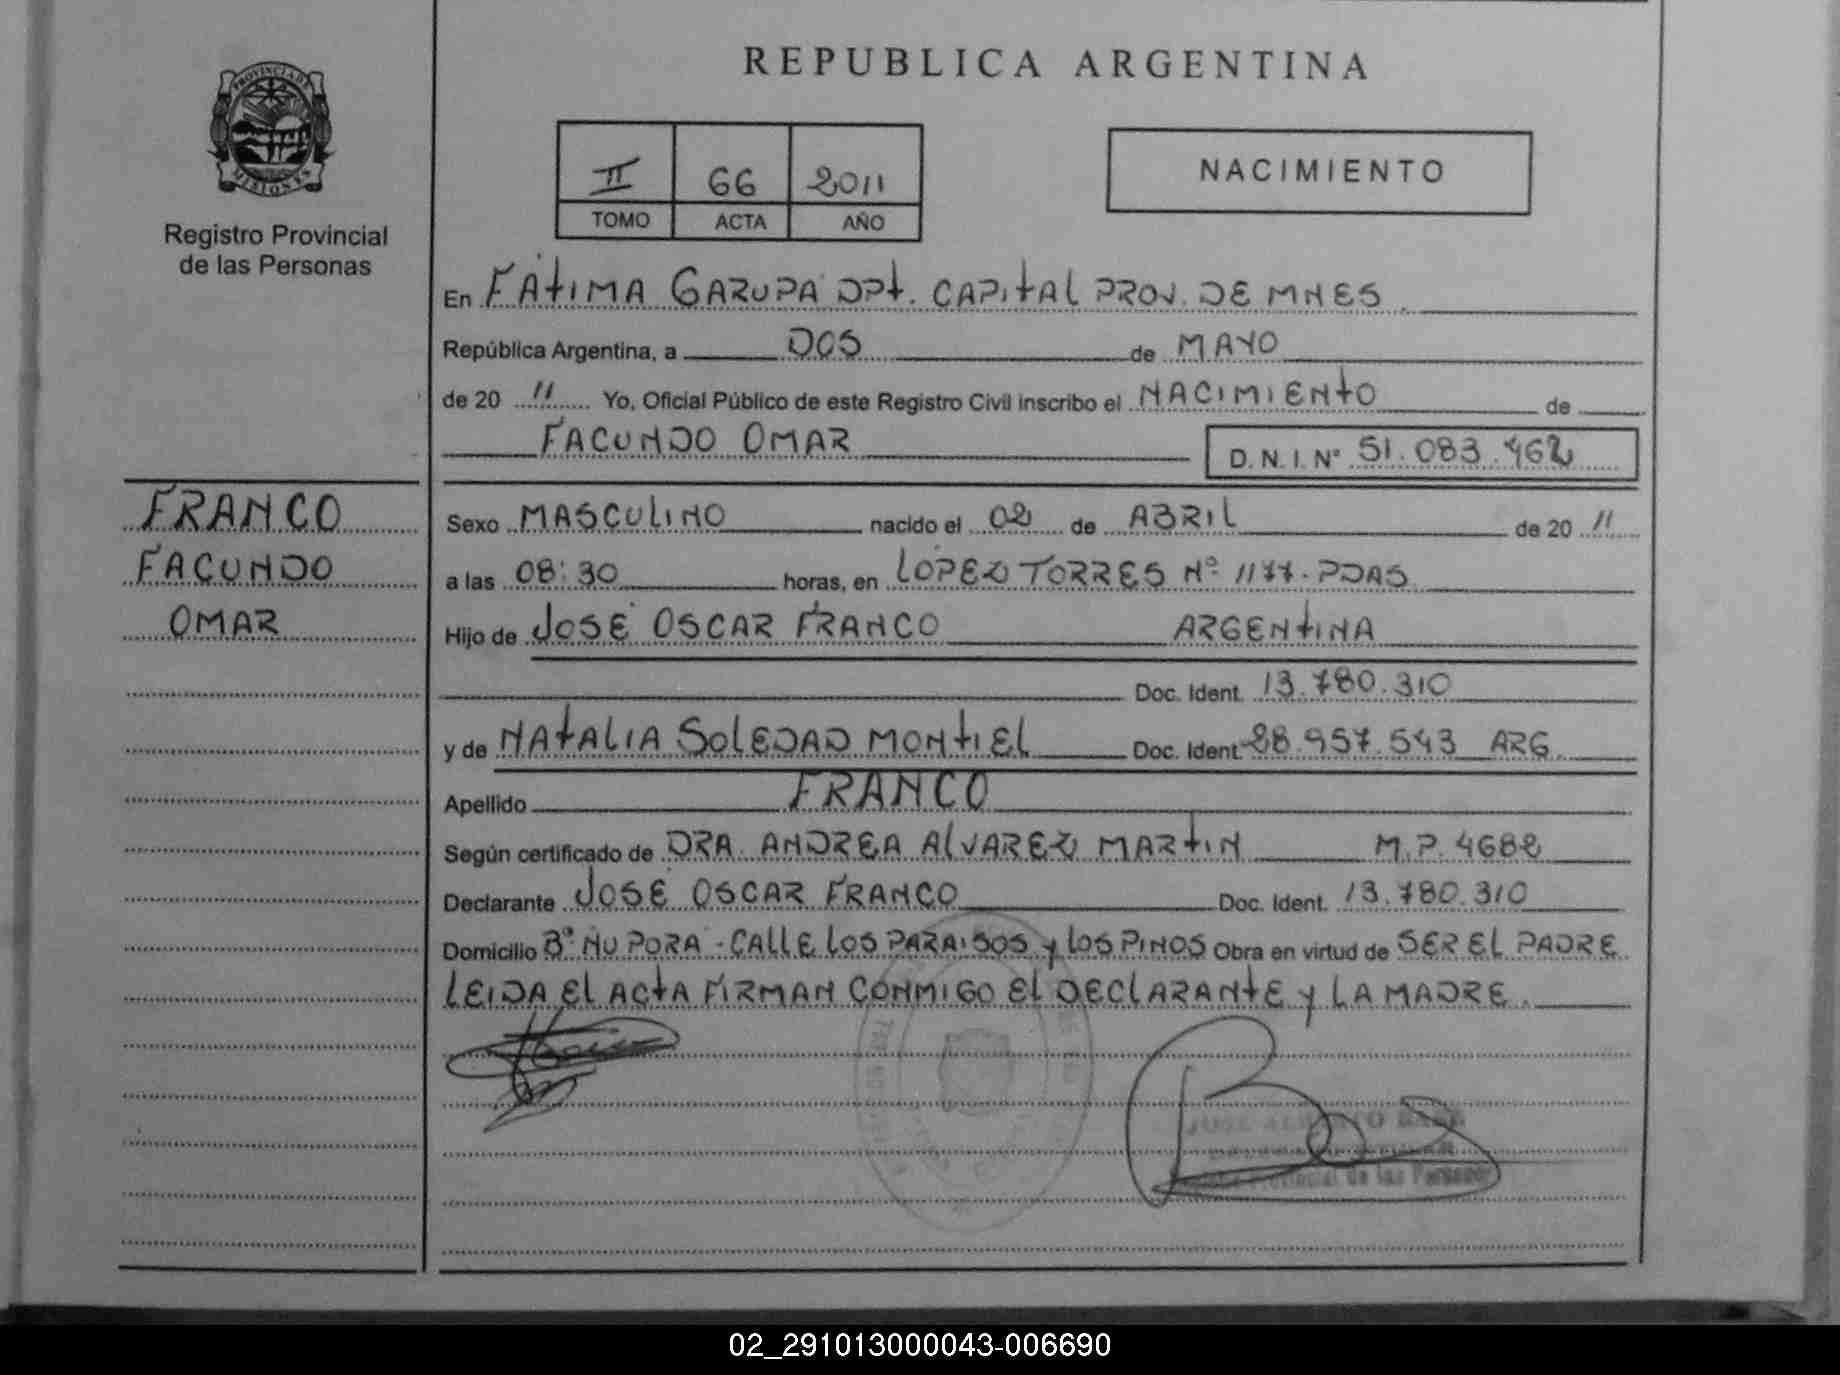 REPUBLICA ARGENTINA
PROVINCIA DE
MISIONES
Registro Provincial
de las Personas
II 66 2011
TOMO ACTA AÑO
NACIMIENTO
En FÁTIMA GARUPA DPt. CAPITAL PROV. DE MNES
República Argentina, a DOS de MAYO
de 20 11 Yo, Oficial Público de este Registro Civil inscribo el NACIMIENTO de
FACUNDO OMAR D.N.I. Nº 51.083.462
FRANCO
FACUNDO
OMAR
Sexo MASCULINO nacido el 02 de ABRIL de 20 11
a las 08:30 horas, en LOPEZ TORRES Nº 1177-PDAS
Hijo de JOSÉ OSCAR FRANCO ARGENTINA
Doc. Ident. 13.780.310
y de NATALIA SOLEDAD MONTIEL Doc. Ident. 28.957.543 ARG
Apellido FRANCO
Según certificado de DRA. ANDREA ALVAREZ MARTIN M.P. 4682
Declarante JOSÉ OSCAR FRANCO Doc. Ident. 13.780.310
Domicilio Bº ÑU PORA - CALLE LOS PARAISOS y LOS PINOS Obra en virtud de SER EL PADRE
LEIDA EL ACTA FIRMAN CONMIGO EL DECLARANTE y LA MADRE.
Provincial de las Personas
02_291013000043-006690